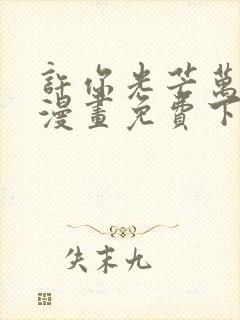 許你光芒萬
漫畫免費下
失末九